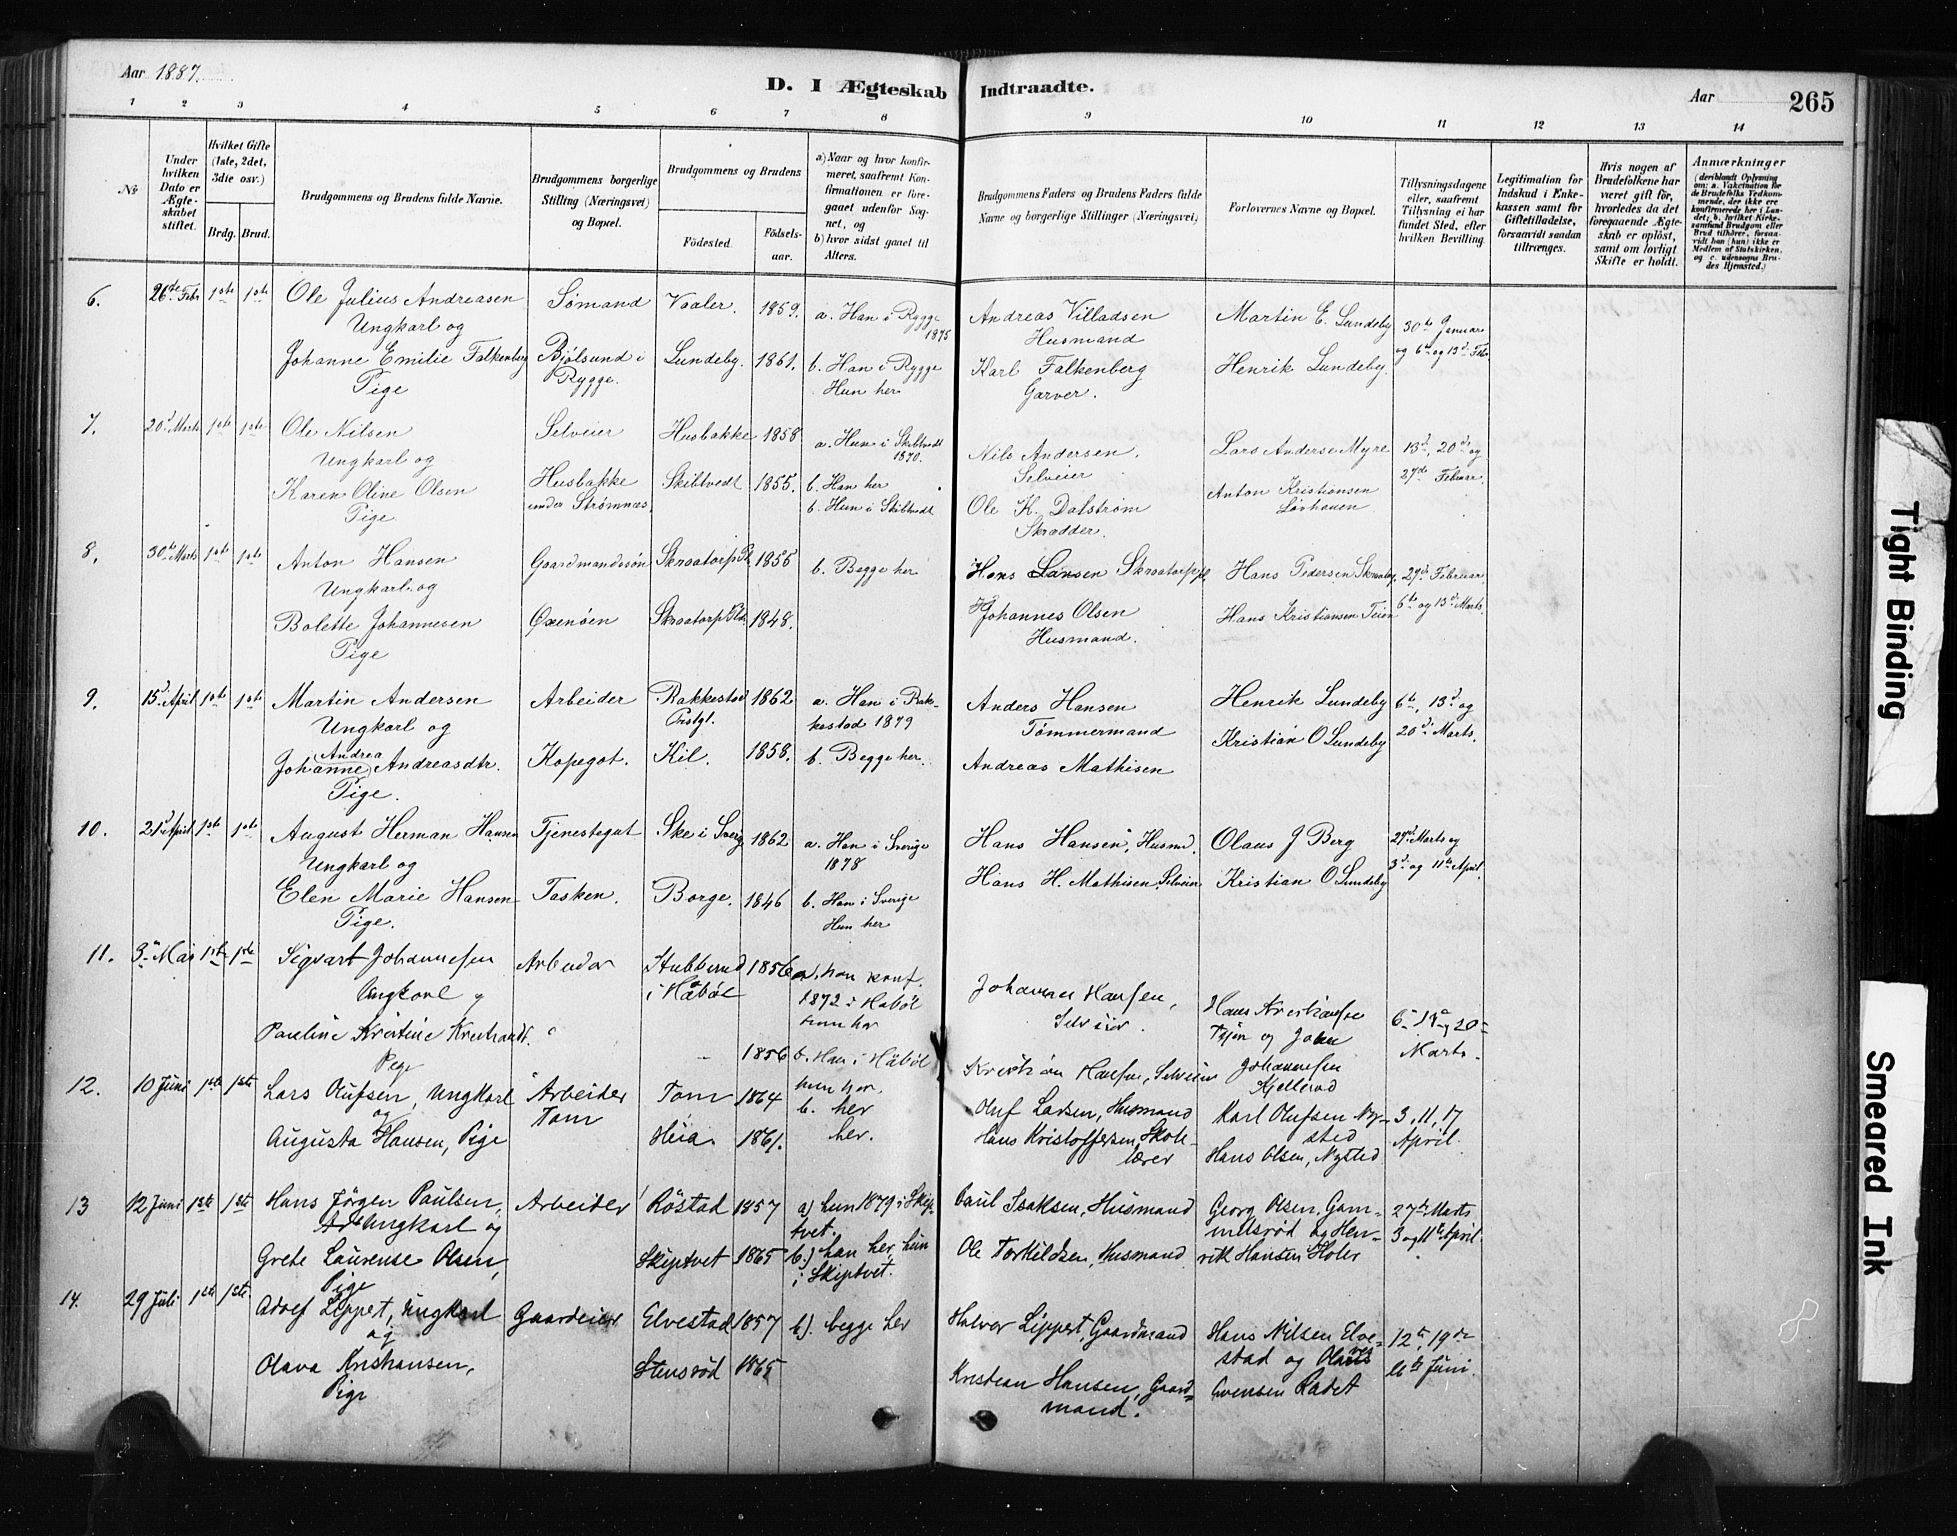 Aar 1887.
D. I Ægteskab Indtraadte.
Aar 265
1 2 3 4 5 6 7 8 9 10 11 12 13 14
No
Under hvilken Dato er Ægteskabet stiftet.
Hvilket Gifte (1ste, 2det, 3die osv.)
Brdg. Brud.
Brudgommens og Brudens fulde Navne.
Brudgommens borgerlige Stilling (Næringsvei) og Bopæl.
Brudgommens og Brudens
Fødested. Fødselsaar.
a) Naar og hvor konfirmeret, saafremt Konfirmationen er foregaaet udenfor Sognet, og
b) hvor sidst gaaet til Alters.
Brudgommens Faders og Brudens Faders fulde Navne og borgerlige Stillinger (Næringsvei)
Forlovernes Navne og Bopæl.
Tillysningsdagene eller, saafremt Tillysning ei har fundet Sted, efter hvilken Bevilling.
Legitimation for Indskud i Enkekassen samt for Giftetilladelse, forsaavidt saadan tiltrænges.
Hvis nogen af Brudefolkene har været gift før, hvorledes da det foregaaende Ægteskab er opløst, samt om lovligt Skifte er holdt.
Anmærkninger (deriblandt Oplysning om: a. Vakcination for de Brudefolks Vedkommende, der ikke ere konfirmerede her i Landet; b. hvilket Kirkesamfund Brudgom eller Brud tilhører, forsaavidt han (hun) ikke er Medlem af Statskirken, og c. udensogns Brudes Hjemsted.)
6. 26de Febr 1ste 1ste Ole Julius Andreasen Sømand Vaaler. 1859. a. Han i Rygge 1875 Andreas Villadsen Martin E. Lundeby 30te Januar
Ungkarl og Husmand og 6te og 13de Feb.
Johanne Emilie Falkenberg Bjølsund i Lundeby. 1861. b. Han i Rygge Karl Falkenberg Henrik Lundeby.
Pige Rygge. Hun her Garver.
7. 20de Marts 1ste 1ste Ole Nilsen Selveier Husbakke 1858 a. Hun i Skibtvedt 1870. Nils Andersen. Lars Anderse Myre 13de, 20de og
Ungkarl og Selveier 27de Februar.
Karen Oline Olsen Husbakke Skibtvedt 1855. b. Han her Ole K. Dalstrøm Anton Kristiansen
Pige. under Strømnæs. b. Hun i Skibtvedt Skrædder. Løvhauen
8. 30te Marts 1ste 1ste Anton Hansen Gaardmandssøn Skraatorp 1855 b. Begge her Hans Larsen Skraatorp Hans Pedersen 27de Februar
Ungkarl og 6te og 13de Marts.
Bolette Johannesen Oxenøen Skraatorp 1848. Johannes Olsen Hans Kristiansen Teien
Pige Husmand.
9. 15de April 1ste 1ste Martin Andersen Arbeider Rakkestad 1862 a. Han i Rak- Anders Hansen Henrik Lundeby 6te, 13de og
Ungkarl og Prstgl. kestad 1879 Tømmermand 20de Marts.
Andrea
Johanne Andreasdtr. Kopegot. Kil. 1858. b. Begge her. Andreas Mathisen Kristian O Lundeby
Pige.
10. 21de April 1ste 1ste August Herman Hansen Tjenestegut Ske i Sverg 1862 a. Han i Sverige Hans Hansen, Husmd. Olaus J Berg 27de Marts og
Ungkarl og 1878 3de og 11te April.
Elen Marie Hansen Tasken. Borge. 1846 b. Han i Sverige Hans H. Mathisen Selveier Kristian O Lundeby
Pige. Hun her
11. 3 Mai 1ste 1ste Sigvart Johannesen Arbeider Stubberud 1856 a. han konf. Johannes Hansen, Hans Kristiansen 6 13 og 20
Ungkarl og i Haabøl 1872 i Habøl Selveier. og Johan Marts.
hun her
Pauline Kristine 1856 b. Han i Håbøl Kristian Hansen, Selveier Johannesen
Pige hun her. Kjellerød
12. 10 Juni 1ste 1ste Lars Olufsen, Ungkarl Arbeider Tom 1864 b. her Oluf Larsen, Husmand Karl Olufsen Ny- 3, 11, 17
og Tom sted April.
Augusta Hansen, Pige Heia 1861. her. Hans Kristoffersen, Skole- Hans Olsen, Nysted
lærer
13 12 Juni 1ste 1ste Hans Jørgen Paulsen, Arbeider Röstad 1857 a) hun 1879 i Skip- Paul Isaksen, Husmand Georg Olsen, Gam- 27de Marts
Ungkarl og tvet. og Hen- 3 og 11te April.
Grete Laurense Olsen, Skiptvet 1865 b.) han her, hun Ole Torkildsen, Husmand rik Hansen Holer
Pige i Skiptvet.
14. 29 Juli 1ste 1ste Adolf Lippert, Ungkarl Gaardeier Elvestad 1857 b). begge her Halvor Lippert, Gaardmand Hans Nilsen Elve- 12te, 19de
og stad og Olaves Juni.
Olava Kristiansen, Stensrød 1865 Kristian Hansen, Gaard- Svensen Radet
Pige mand.
Tight Binding
Smeared Ink